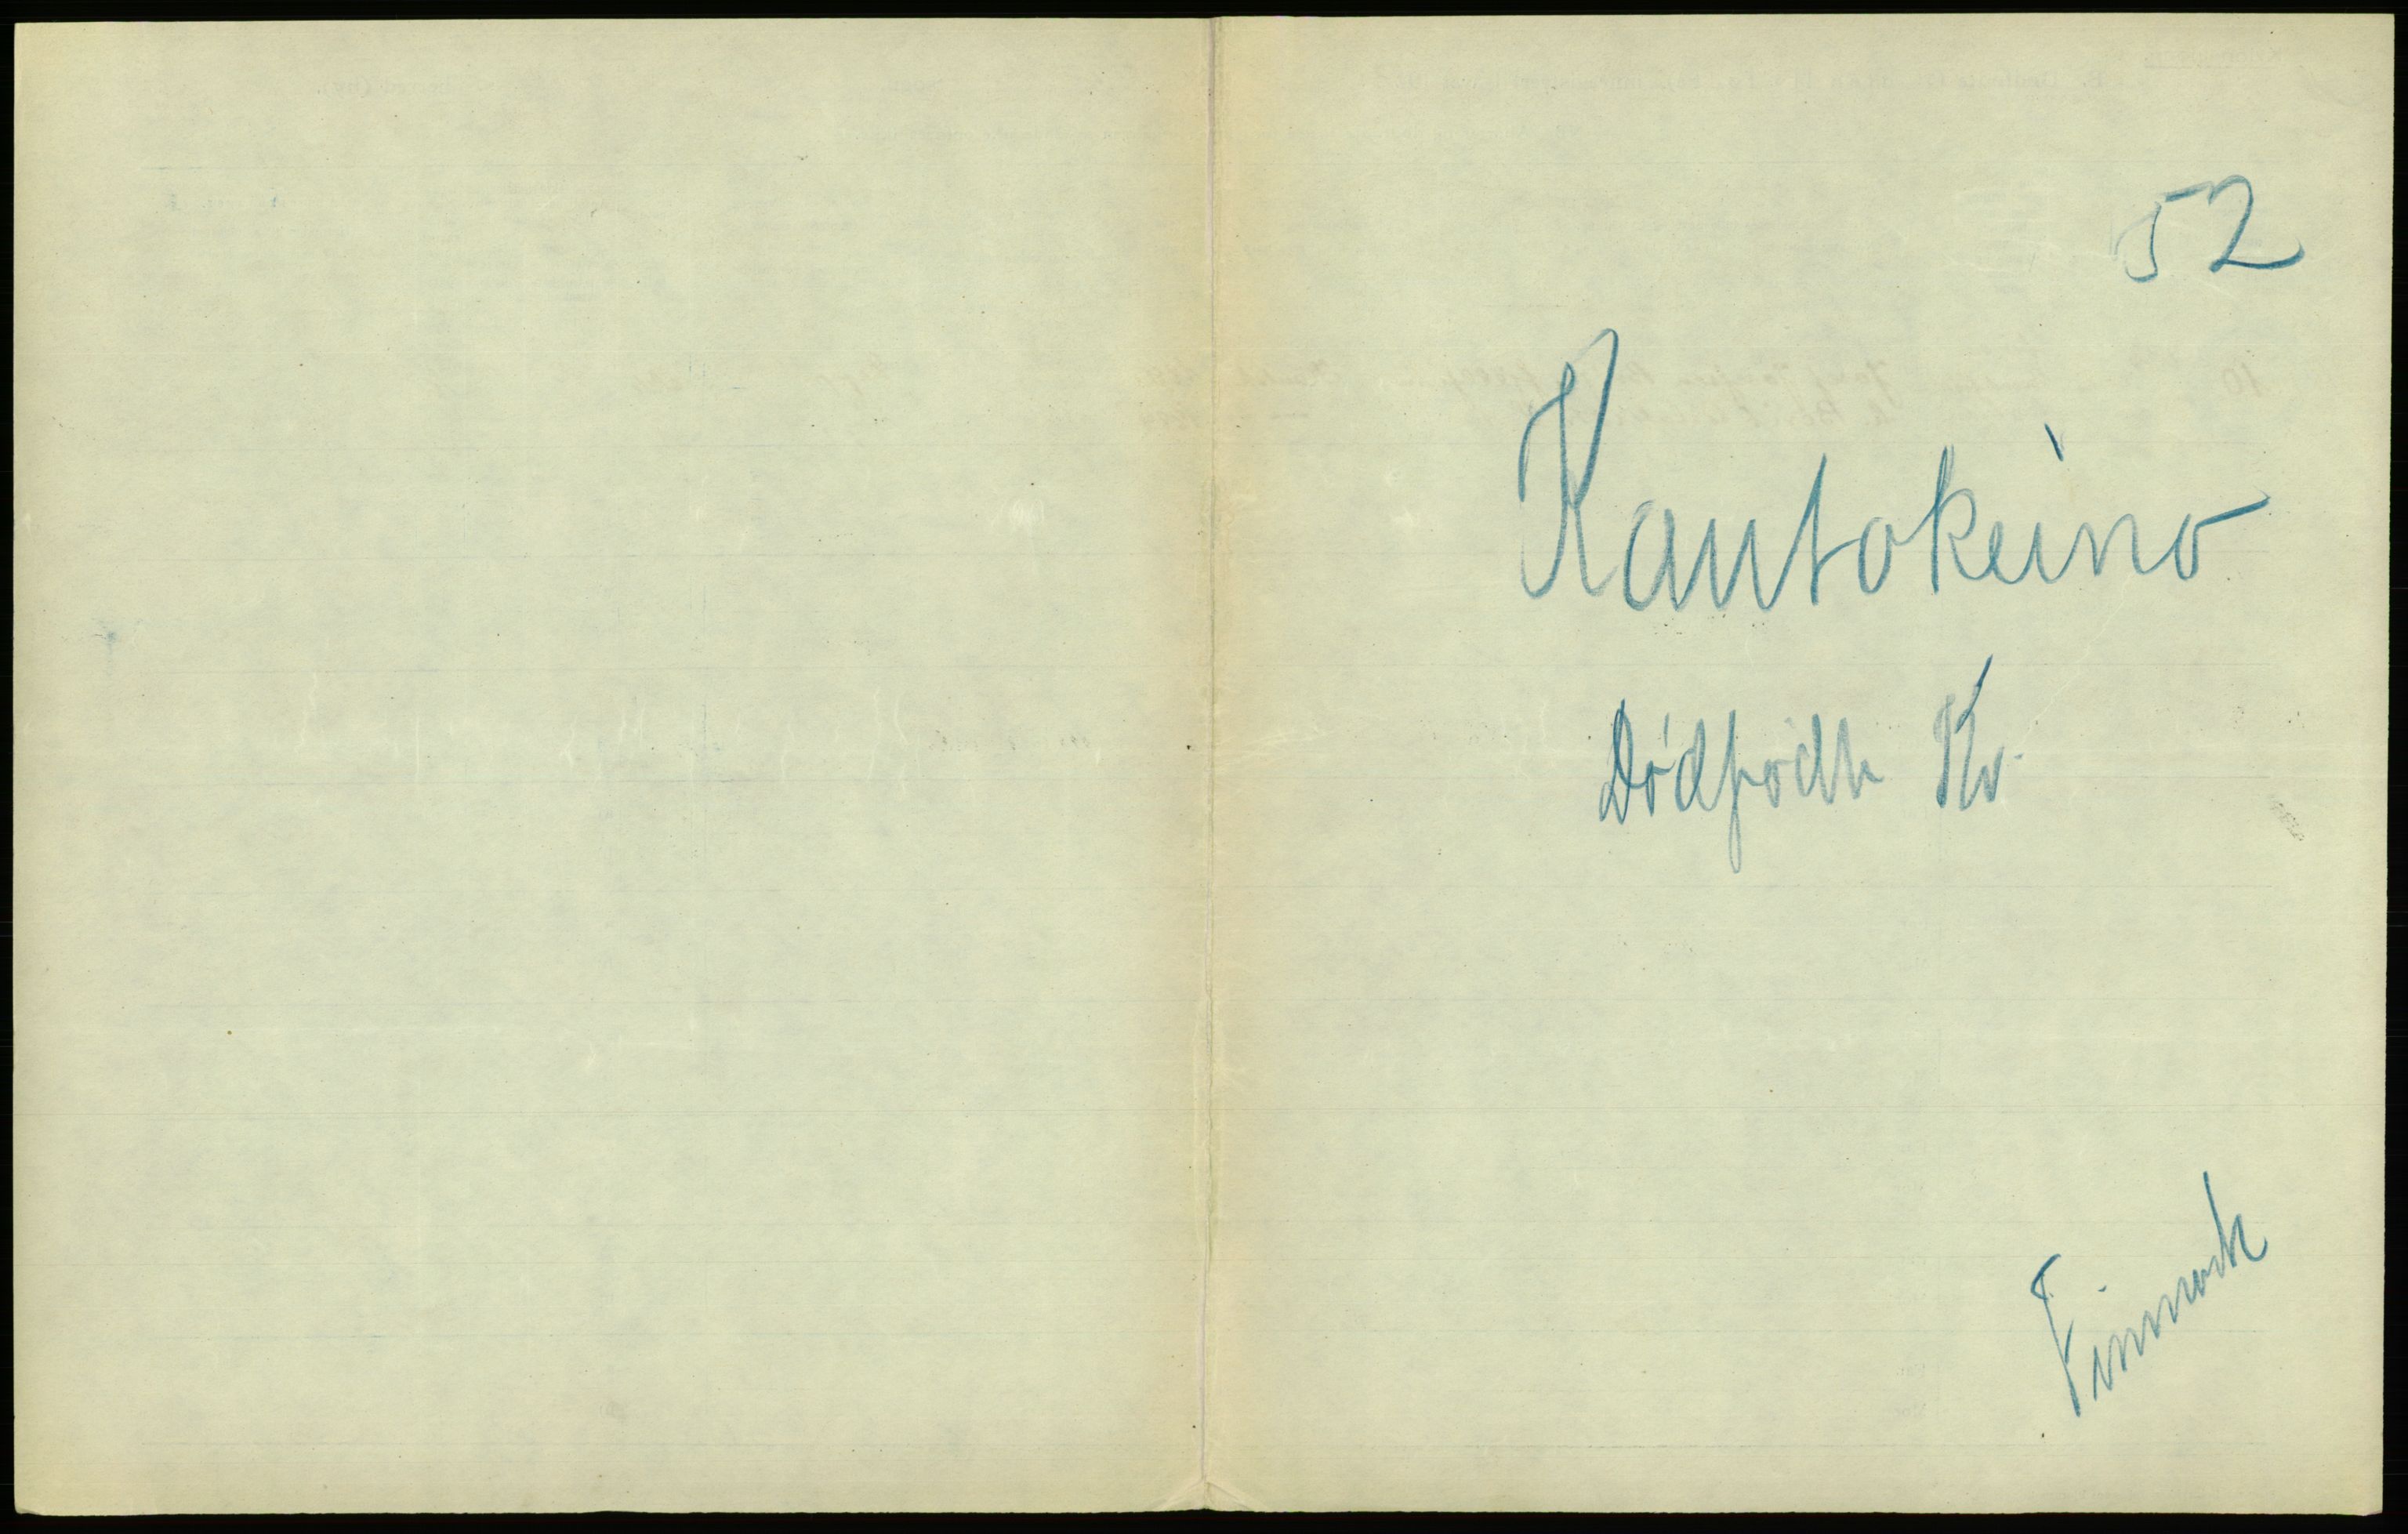 52
Kautokeino
Dødfødte Kv.
Finmark